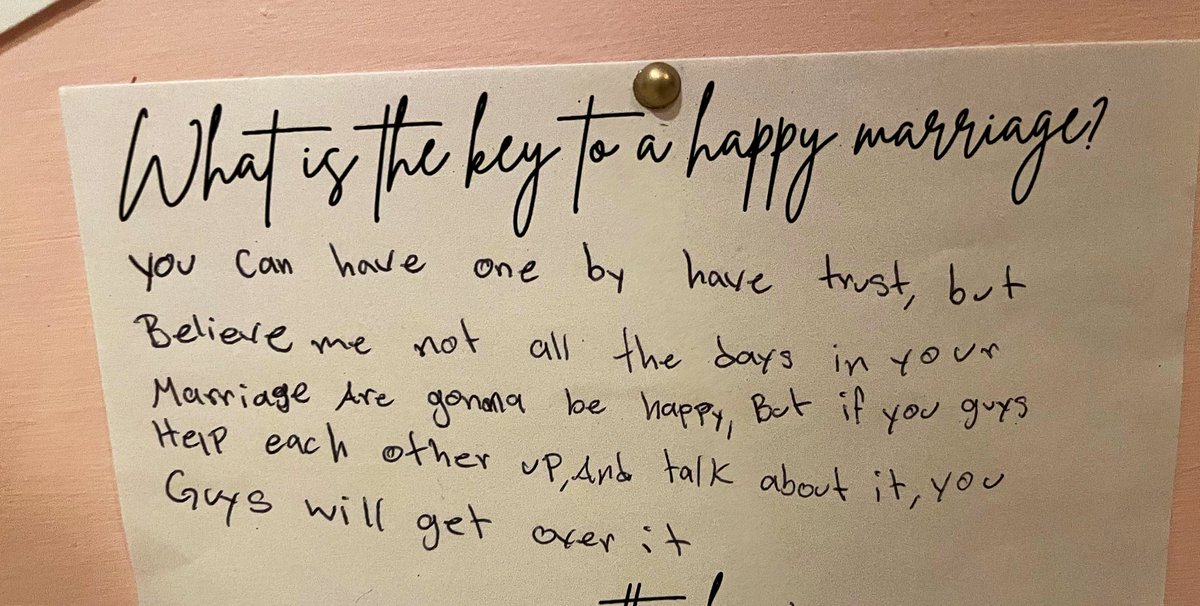 What is the key to a happy marriage?
you can have one by have trust, but
Believe me not all the days in your
Marriage Are gonna be happy, But if you guys
Help each other up, And talk about it, you
Guys will get over it